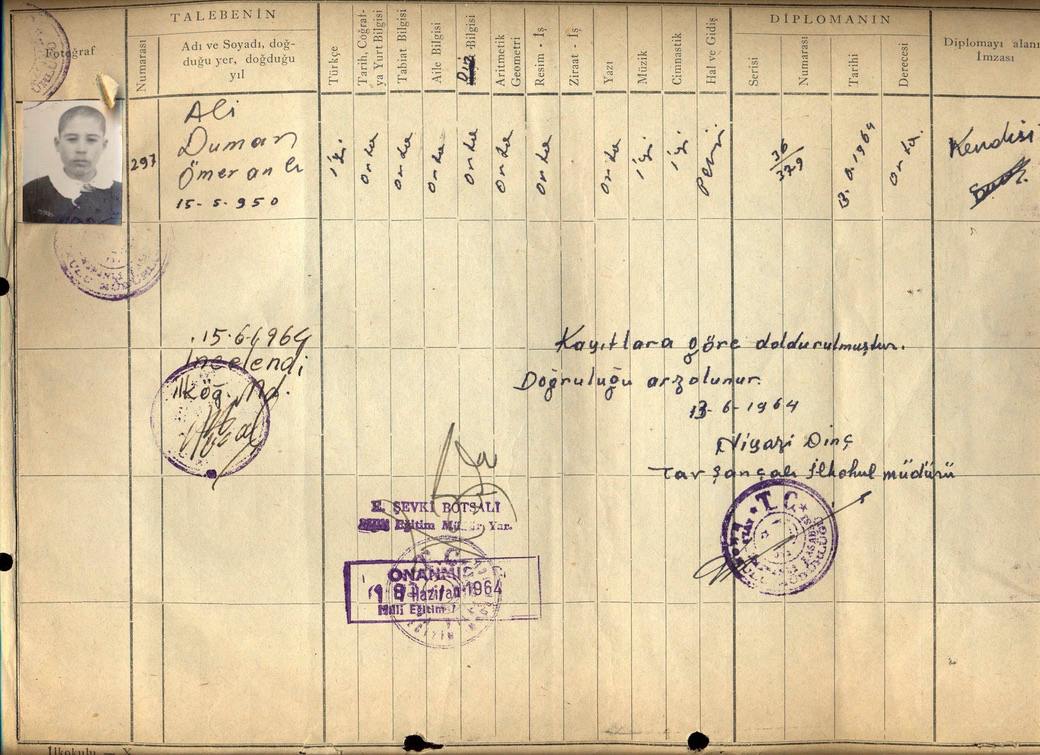 TALEBENİN
DİPLOMANIN
Fotoğraf
Numarası
Adı ve Soyadı, doğ-
duğu yer, doğduğu
yıl
Türkçe
Tarih, Coğraf-
ya Yurt Bilgisi
Tabiat Bilgisi
Aile Bilgisi
Din Bilgisi
Aritmetik
Geometri
Resim - İş
Ziraat - İş
Yazı
Müzik
Cimnastik
Hal ve Gidiş
Serisi
Numarası
Tarihi
Derecesi
Diplomayı alanın
İmzası
297
Ali
Duman
Ömeranlı
15-5-950
iyi
orta
orta
orta
orta
orta
orta
orta
iyi
iyi
Pekiyi
36/379
1964
orta
Kendisi
15-6-1964
İncelendi
İlköğ. Md.
Kayıtlara göre doldurulmuştur.
Doğruluğu arzolunur.
13-6-1964
Niyazi Dinç
Tavşançalı İlkokul müdürü
T.C.
E. ŞEVKİ BOTSALI
Eğitim Müdür Yar.
T.C.
ONANMIŞ
18 Haziran 1964
Milli Eğitim
İlkokulu — X